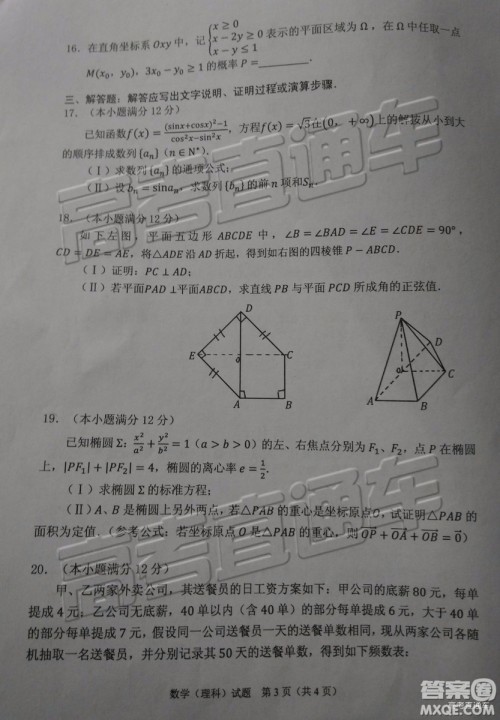 16. 在直角坐标系Oxy中，记{x≥0 x-2y≥0 x-y≤1 表示的平面区域为Ω，在Ω中任取一点
M(x₀，y₀)，3x₀-y₀≥1的概率P=________.
三、解答题：解答应写出文字说明、证明过程或演算步骤.
17. (本小题满分12分)
已知函数f(x)=((sinx+cosx)²-1)/(cos²x-sin²x)，方程f(x)=√3在(0，+∞)上的解按从小到大
的顺序排成数列{aₙ} (n∈N*).
(Ⅰ)求数列{aₙ}的通项公式；
(Ⅱ)设bₙ=sinaₙ，求数列{bₙ}的前n项和Sₙ.
18. (本小题满分12分)
如下左图，平面五边形ABCDE中，∠B=∠BAD=∠E=∠CDE=90°，
CD=DE=AE，将△ADE沿AD折起，得到如右图的四棱锥P-ABCD.
(Ⅰ)证明：PC⊥AD；
(Ⅱ)若平面PAD⊥平面ABCD，求直线PB与平面PCD所成角的正弦值.
D
E
C
A
B
P
D
C
A
B
19. (本小题满分12分)
已知椭圆Σ：x²/a²+y²/b²=1 (a>b>0)的左、右焦点分别为F₁、F₂，点P在椭圆
上，|PF₁|+|PF₂|=4，椭圆的离心率e=1/2.
(Ⅰ)求椭圆Σ的标准方程；
(Ⅱ)A、B是椭圆上另外两点，若△PAB的重心是坐标原点O，试证明△PAB的
面积为定值.(参考公式：若坐标原点O是△PAB的重心，则OP+OA+OB=0)
20. (本小题满分12分)
甲、乙两家外卖公司，其送餐员的日工资方案如下：甲公司的底薪80元，每单
提成4元；乙公司无底薪，40单以内(含40单)的部分每单提成6元，大于40单
的部分每单提成7元，假设同一公司送餐员一天的送餐单数相同，现从两家公司各随机
抽取一名送餐员，并分别记录其50天的送餐单数，得到如下频数表：
数学(理科)试题 第3页(共4页)
高考直通车
高考直通车
答案圈
MXQE.COM